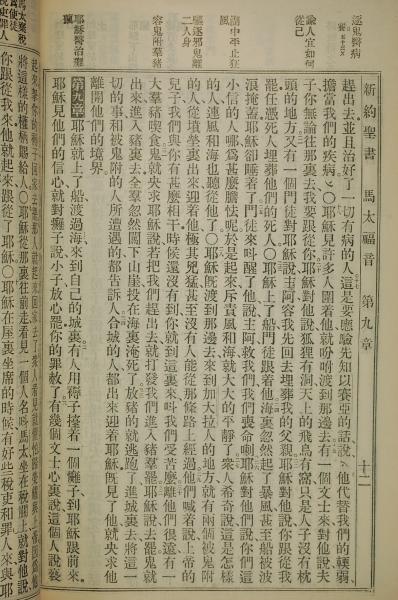 新約聖書 馬太福音 第九章 十二
逐鬼醫病
論人宜如何從己
海中平止狂風
驅逐邪鬼離二人身
容鬼附羣豬
耶穌醫治癱瘋
趕出去並且治好了一切有病的人這是要應驗先知以賽亞的話說他代替我們的輭弱
擔當我們的疾病〇耶穌見許多人圍着他就吩咐渡到那邊去有一個文士來對他說夫
子你無論往那裏去我要跟從你耶穌對他說狐狸有洞天上的飛鳥有窩只是人子沒有枕
頭的地方又有一個門徒對耶穌說主阿容我先回去埋葬我的父親耶穌對他說你跟從我
罷任憑死人埋葬他們的死人〇耶穌上了船門徒跟着他海裏忽然起了暴風甚至船被波
浪掩蓋耶穌卻睡着了門徒來呌醒了他說主救我們我們喪命喇耶穌對他們說你們這
小信的人哪爲甚麼膽怯呢於是起來斥責風和海就大大的平靜了衆人希奇說這是怎樣
的人連風和海也聽從他了〇耶穌既渡到那邊去來到加大拉人的地方就有兩個被鬼附
的人從墳塋裏出來迎着他極其兇猛甚至沒有人能從那條路上經過他們喊着說上帝的
兒子我們與你有甚麼相干時候還沒有到你就到這裏來呌我們受苦麼離他們很遠有一
大羣豬喫食鬼就央求耶穌說若把我們趕出去就打發我們進入豬羣罷耶穌說去罷鬼就
出來進入豬裏去全羣忽然闖下山崖投在海裏淹死了放豬的就逃跑了進城裏去將這一
切的事和被鬼附的人所遭遇的都告訴人合城的人都出來迎着耶穌既見了他就央求他
離開他們的境界
第九章 耶穌就上了船渡過海來到自己的城裏有人用褥子擡着一個癱子到耶穌跟前來
耶穌見他們的信心就對癱子說小子放心罷你的罪赦了有幾個文士心裏說這個人說褻
將這樣的權柄賜給人〇耶穌從那裏往前走看見一個人名呌馬太坐在稅關上就對他說
你跟從我來他就起來跟從了耶穌〇耶穌在屋裏坐席的時候有好些稅吏和罪人來與耶